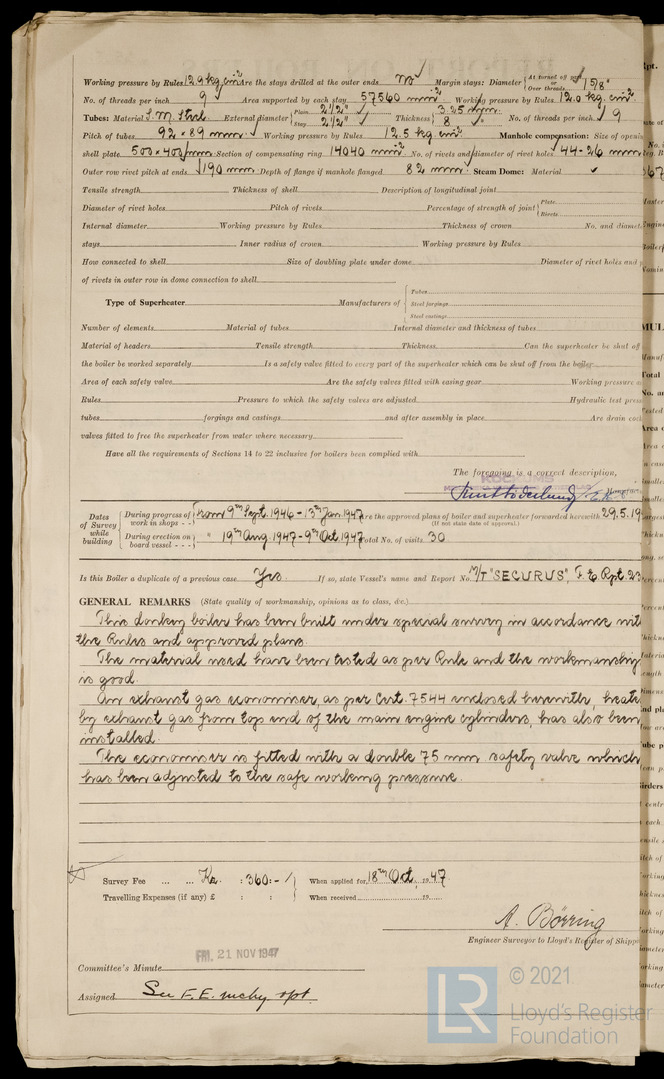 Working pressure by Rules 12.9 kg cm² Are the stays drilled at the outer ends no Margin stays: Diameter { At turned off part, or Over threads 1 5/8"
No. of threads per inch 9 Area supported by each stay 57560 mm² Working pressure by Rules 12.0 kg cm²
Tubes: Material S.M. Steel External diameter { Plain 2 1/2" Stay 2 1/2" Thickness { 3.25 mm 8 " No. of threads per inch 9
Pitch of tubes 92 × 89 mm Working pressure by Rules 12.5 kg cm² Manhole compensation: Size of openin
shell plate 500 × 400 mm Section of compensating ring 14040 mm² No. of rivets and diameter of rivet holes 44-26 mm
Outer row rivet pitch at ends 190 mm Depth of flange if manhole flanged 82 mm Steam Dome: Material
Tensile strength Thickness of shell Description of longitudinal joint
Diameter of rivet holes Pitch of rivets Percentage of strength of joint { Plate Rivets
Internal diameter Working pressure by Rules Thickness of crown No. and diamet
stays Inner radius of crown Working pressure by Rules
How connected to shell Size of doubling plate under dome Diameter of rivet holes and p
of rivets in outer row in dome connection to shell
Type of Superheater Manufacturers of { Tubes Steel forgings Steel castings
Number of elements Material of tubes Internal diameter and thickness of tubes
Material of headers Tensile strength Thickness Can the superheater be shut off
the boiler be worked separately Is a safety valve fitted to every part of the superheater which can be shut off from the boiler
Area of each safety valve Are the safety valves fitted with easing gear Working pressure
Rules Pressure to which the safety valves are adjusted Hydraulic test press
tubes forgings and castings and after assembly in place Are drain coc
valves fitted to free the superheater from water where necessary
Have all the requirements of Sections 14 to 22 inclusive for boilers been complied with
The foregoing is a correct description,
Manufac
Dates of Survey while building { During progress of work in shops - - From 9th Sept. 1946 - 13th Jan. 1947 Are the approved plans of boiler and superheater forwarded herewith 29.5.19
(If not state date of approval.)
During erection on board vessel - - - " 19th Aug. 1947 - 9th Oct. 1947 Total No. of visits 30
Is this Boiler a duplicate of a previous case Yes. If so, state Vessel's name and Report No. M/T "SECURUS", F.E. Rpt. 23
GENERAL REMARKS (State quality of workmanship, opinions as to class, &c.)
This donkey boiler has been built under special survey in accordance wit
the Rules and approved plans.
The material used have been tested as per Rule and the workmanship
is good.
An exhaust gas economiser, as per Cert. 7544 enclosed herewith, heate
by exhaust gas from top end of the main engine cylinders, has also been
installed.
The economiser is fitted with a double 75 mm safety valve which
has been adjusted to the safe working pressure.
Survey Fee ... ... Kr. : 360:- When applied for 18th Oct. 1947
Travelling Expenses (if any) £ : : When received 19
A. Börring
Engineer Surveyor to Lloyd's Register of Shipp
FRI. 21 NOV 1947
Committee's Minute
Assigned See F.E. mchy rpt.
© 2021
Lloyd's Register
Foundation
LR